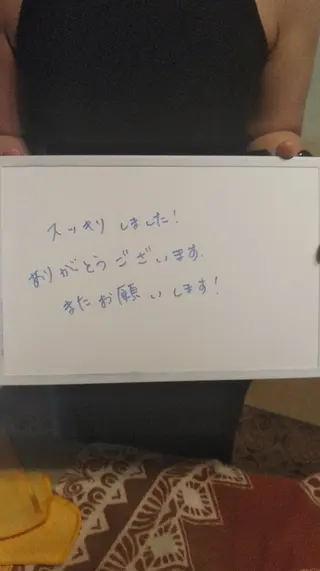 スッキリ しました!
ありがとうございます.
またお願いします!